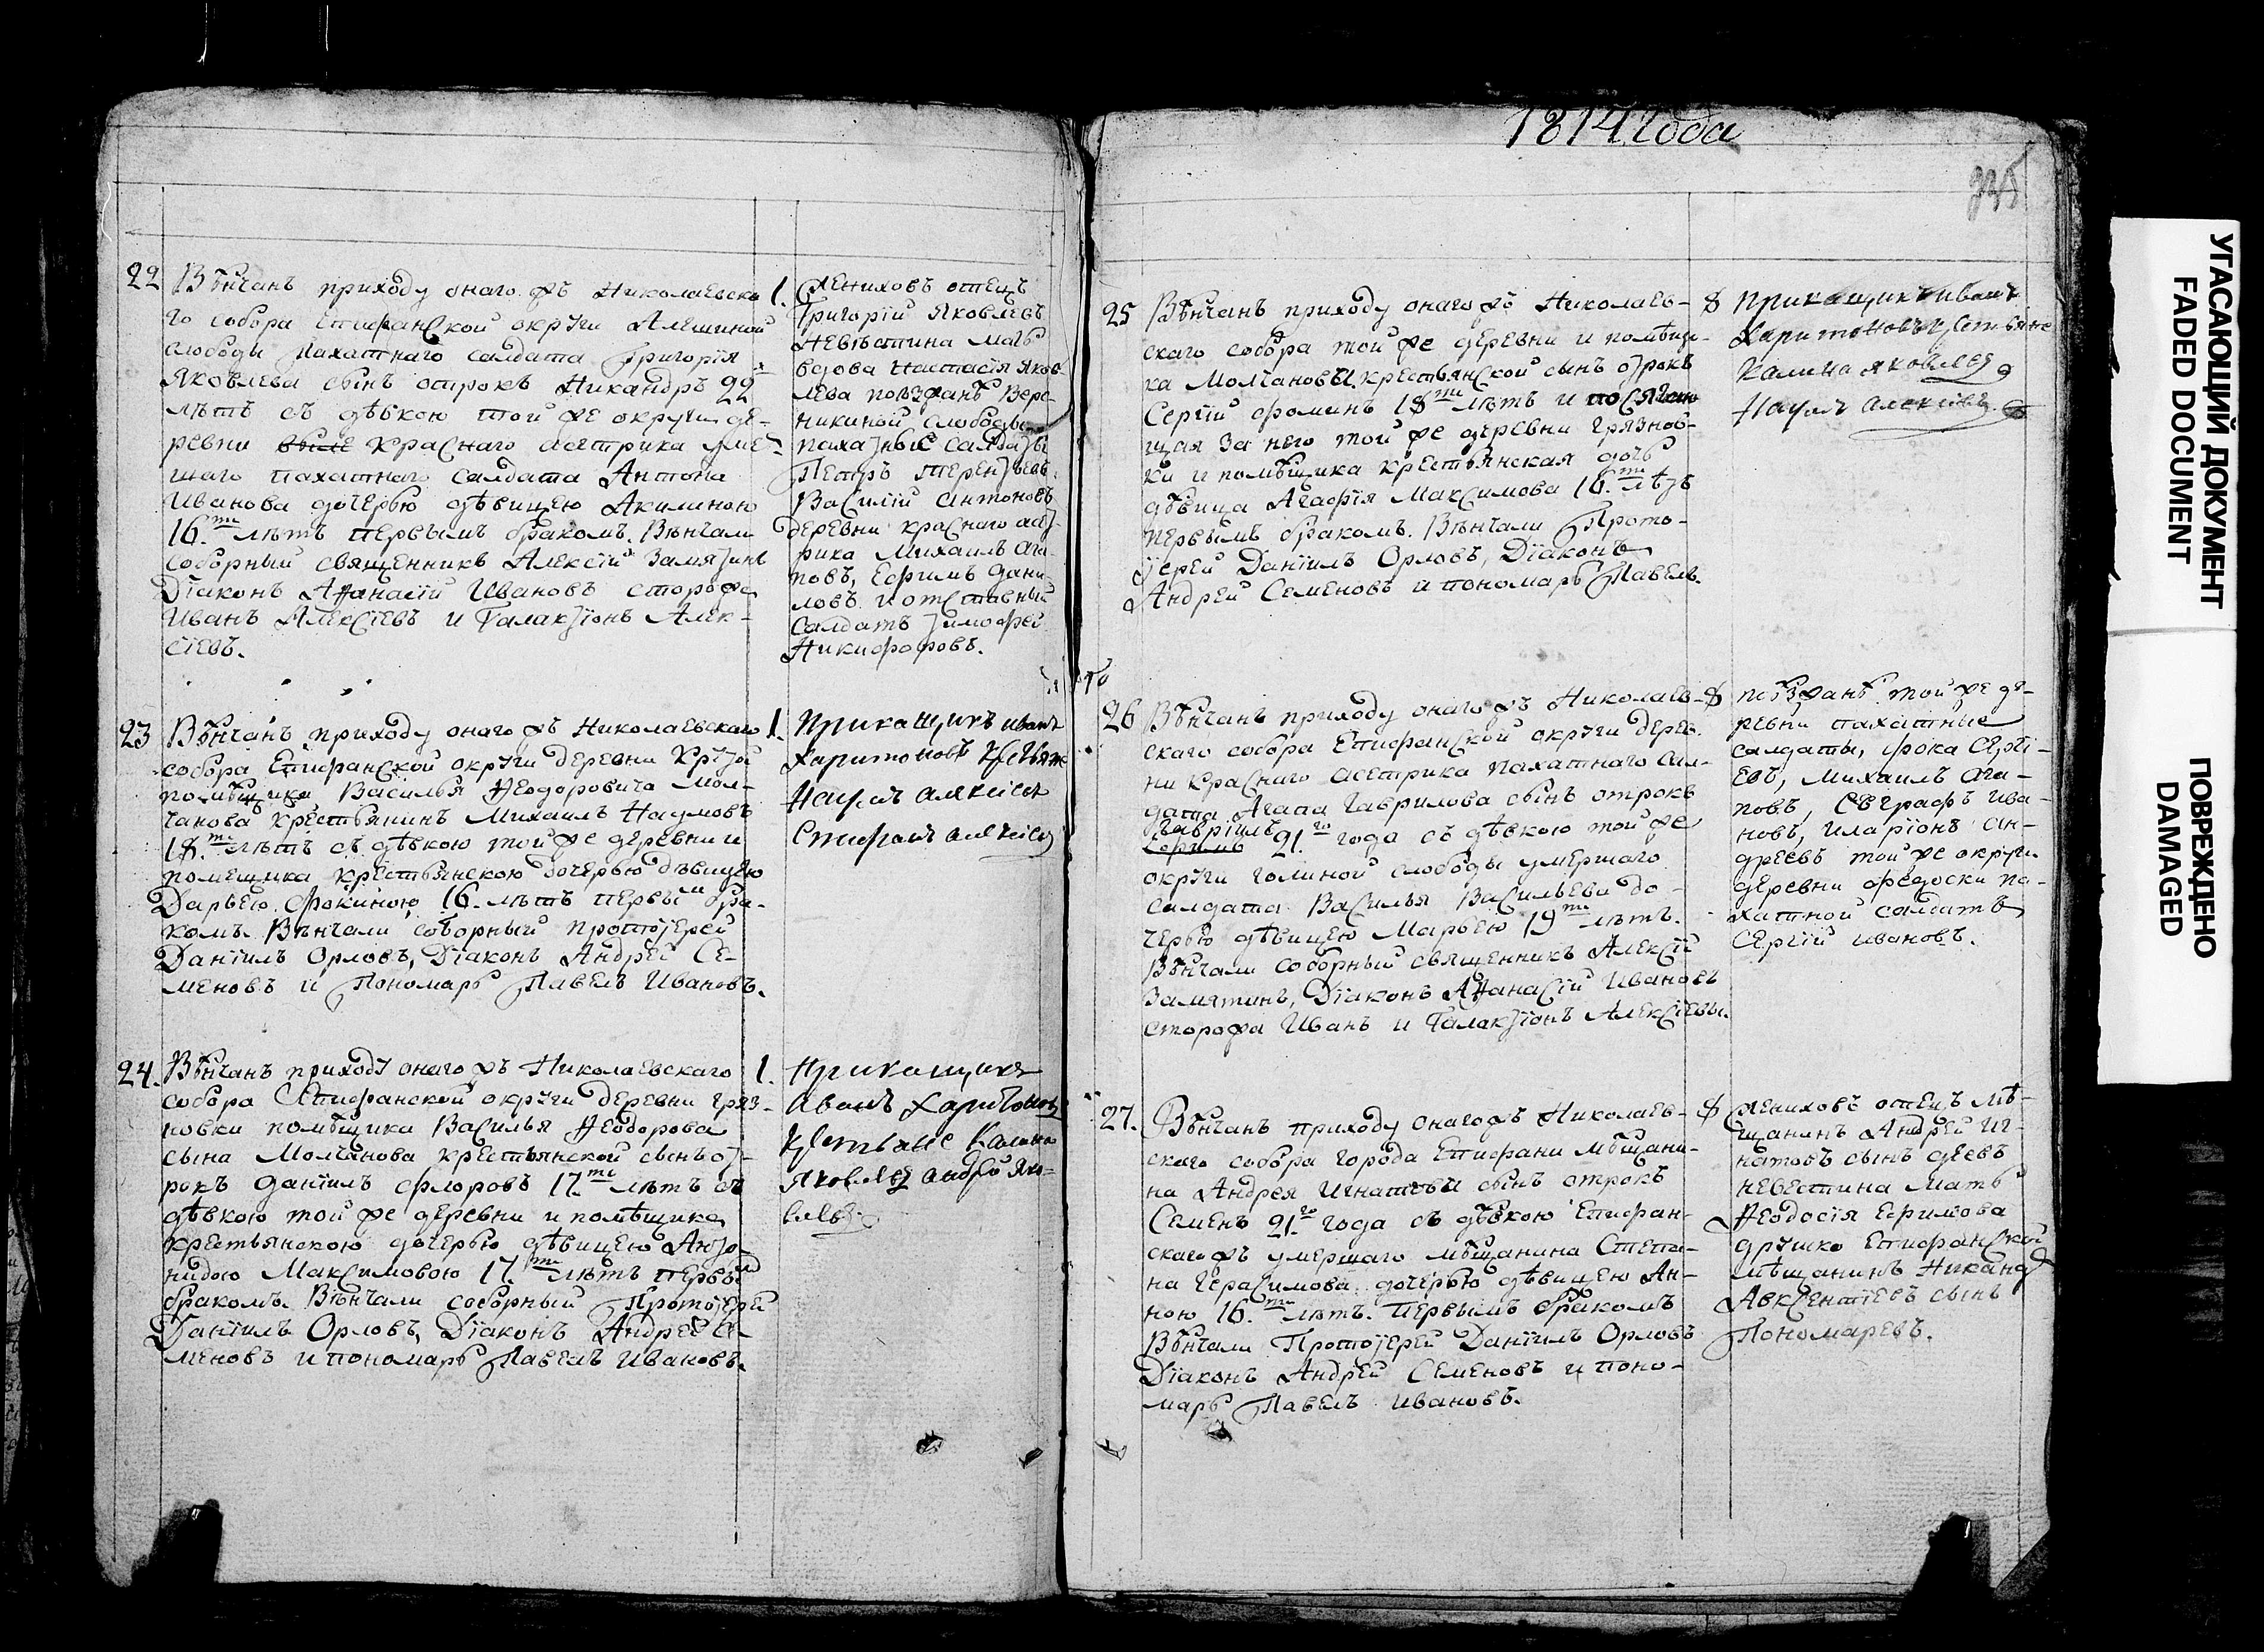 1814 года
22
Вѣнчанъ приходу онаго жъ Николаевска
го собора Епифанской округи Алешиной
слободы пахатнаго салдата Григорія
Яковлева сынъ отрокъ Никандръ 22
лѣтъ съ дѣвкою той же округи де-
ревни Краснаго осетрика умер-
шаго пахатнаго салдата Антона
Иванова дочерью дѣвицею Акилиною
16.ти лѣтъ первымъ бракомъ. Вѣнчали
соборный священникъ Алексій Замятинъ
Діаконъ Аѳанасій Ивановъ сторожа
Иванъ Алексіевъ и Галактіонъ Алек-
сіевъ.
1.
Жениховъ отецъ
Григорій Яковлевъ
невѣстина мать
вдова Настасія Яков
лева поѣзжанѣ Бере
никиной слободы
пахатные салдаты
Петръ Терентьевъ
Василій Антоновъ
деревни краснаго осет-
рика Михаилъ Ага-
повъ, Ефимъ Дани-
ловъ и отставный
салдатъ Тимофей
Никифоровъ.
23
Вѣнчанъ приходу онаго жъ Николаевскаго
собора Епифанской округи деревни Крутой
помѣщика Василья Ѳеодоровича Мол-
чанова крестьянинъ Михаилъ Наумовъ
18.ти лѣтъ съ дѣвкою той же деревни и
помещика крестьянскою дочерью дѣвицею
Дарьею Фокиною 16. лѣтъ первым бра-
комъ. Вѣнчали соборный протоіерей
Даніилъ Орловъ, Діаконъ Андрей Се-
меновъ и Пономарь Павелъ Ивановъ.
1.
Прикащикъ иванъ
Харитоновъ крестьяне
Наумъ алексіевъ
Стифанъ алексіевъ
24.
Вѣнчанъ приходу онаго жъ Николаевскаго
собора Епифанской округи деревни Гряз-
новки помѣщика Василья Ѳеодорова
сына Молчанова крестьянской сынъ от-
рокъ Даніилъ Флоровъ 17.ти лѣтъ съ
дѣвкою той же деревни и помѣщика
крестьянскою дочерью дѣвицею Анто-
нидою Максимовою 17.ти лѣтъ первым
бракомъ. Вѣнчали соборный Протоіерей
Даніилъ Орловъ, Діаконъ Андрей Се-
меновъ и пономарь Павелъ Ивановъ.
1.
Прикащикъ
Иванъ Харитоновъ
Крестьяне Калина
Яковлевъ андрей Яко-
влевъ
25
Вѣнчанъ приходу онаго жъ Николаев-
скаго собора той же деревни и помѣщи-
ка Молчановы крестьянской сынъ отрокъ
Сергій Фоминъ 18ти лѣтъ и посягаю-
щая за него той же деревни Грязнов-
ки и помѣщика крестьянская дочь
дѣвица Агафія Максимова 16.ти лѣтъ
первымъ бракомъ. Вѣнчали Прото-
іерей Даніилъ Орловъ, Діаконъ
Андрей Семеновъ и пономарь Павелъ.
Прикащикъ иванъ
Харитоновъ крестьяне
Калина яковлевъ
Наумъ алексіевъ.
26
Вѣнчанъ приходу онаго жъ Николаев-
скаго собора Епифанской округи дерев-
ни Краснаго осетрика пахатнаго сал-
дата Агапа Гаврилова сынъ отрокъ
Гавріилъ
Ефимъ 21.го года съ дѣвкою той же
округи Голиной слободы умершаго
салдата Василья Васильева до-
черью дѣвицею Марьею 19ти лѣтъ.
Вѣнчали соборный священникъ Алексій
Замятинъ, Діаконъ Аѳанасій Ивановъ
сторожа Иванъ и Галактіонъ Алексіевы.
поѣзжанѣ той же де-
ревни пахатные
салдаты, Фока Сергі-
евъ, Михаилъ Ага-
повъ, Евграфъ Ива-
новъ, Иларіонъ Ан-
дреевъ той же округи
деревни Федоски па-
хатной салдатъ
Сергій Ивановъ.
27.
Вѣнчанъ приходу онаго жъ Николаев-
скаго собора города Епифани мѣщани-
на Андрея Игнатова сынъ отрокъ
Семенъ 21.го года съ дѣвкою Епифан-
скаго жъ умершаго мѣщанина Степа-
на Герасимова дочерью дѣвицею Ан-
ною 16.ти лѣтъ. Первымъ бракомъ
Вѣнчали Протоіерей Даніилъ Орловъ
Діаконъ Андрей Семеновъ и поно-
марь Павелъ Ивановъ.
Жениховъ отецъ мѣ-
щанинъ Андрей Иг-
натовъ сынъ
невестина мать
Ѳеодосія Ефимова
дружко Епифанской
мѣщанинъ Никандр
Авксентіевъ сынъ
Пономаревъ.
УГАСАЮЩИЙ ДОКУМЕНТ
FADED DOCUMENT
ПОВРЕЖДЕНО
DAMAGED